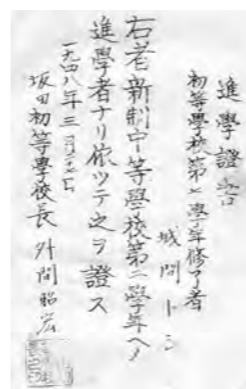 進學證書
初等學校第七學年修了者
城間トミ
右者新制中等學校第二學年ヘノ
進學者ナリ依ツテ之ヲ證ス
一九四八年三月二七日
坂田初等學校長 外間昭宏